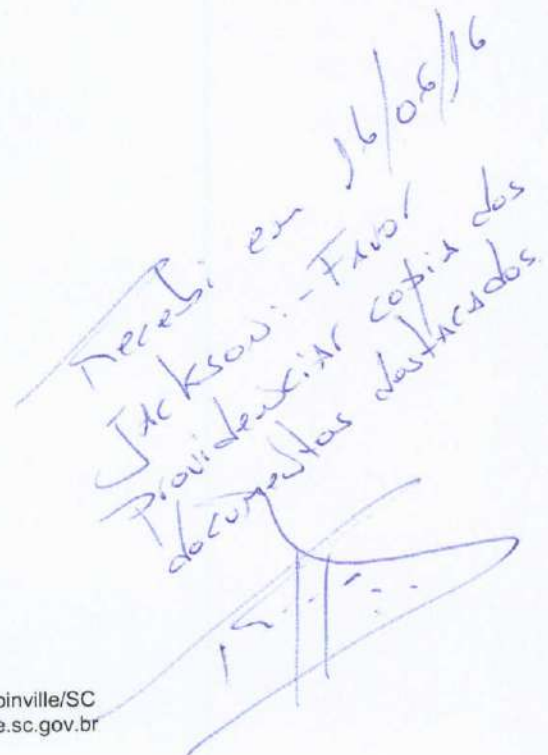 Recebi em 16/06/16
Jackson:- Favor
Providenciar copia dos
documentos destacados.
oinville/SC
e.sc.gov.br